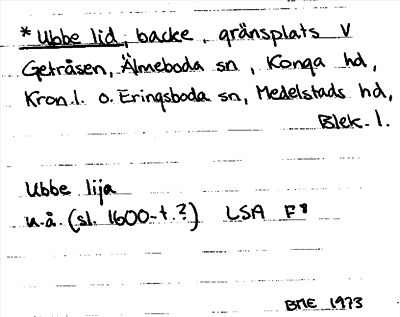 *Ubbe lid, backe, gränsplats V
Getråsen, Älmeboda sn, Konga hd,
Kron.l. o. Eringsboda sn, Medelstads hd,
Blek. l.
Ubbe lija
u.å. (sl. 1600-t.?) LSA F8
BME 1973